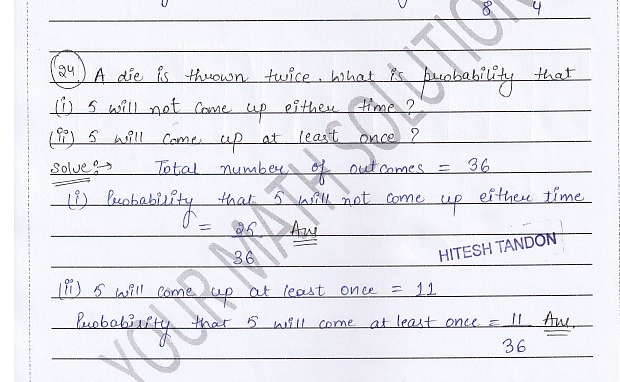 8 4
24. A die is thrown twice. What is probability that
(i) 5 will not come up either time?
(ii) 5 will come up at least once?
Solve:→ Total number of outcomes = 36
(i) Probability that 5 will not come up either time
= 25/36 Ans
HITESH TANDON
(ii) 5 will come up at least once = 11
Probability that 5 will come at least once = 11/36 Ans.
YOUR MATH SOLUTION